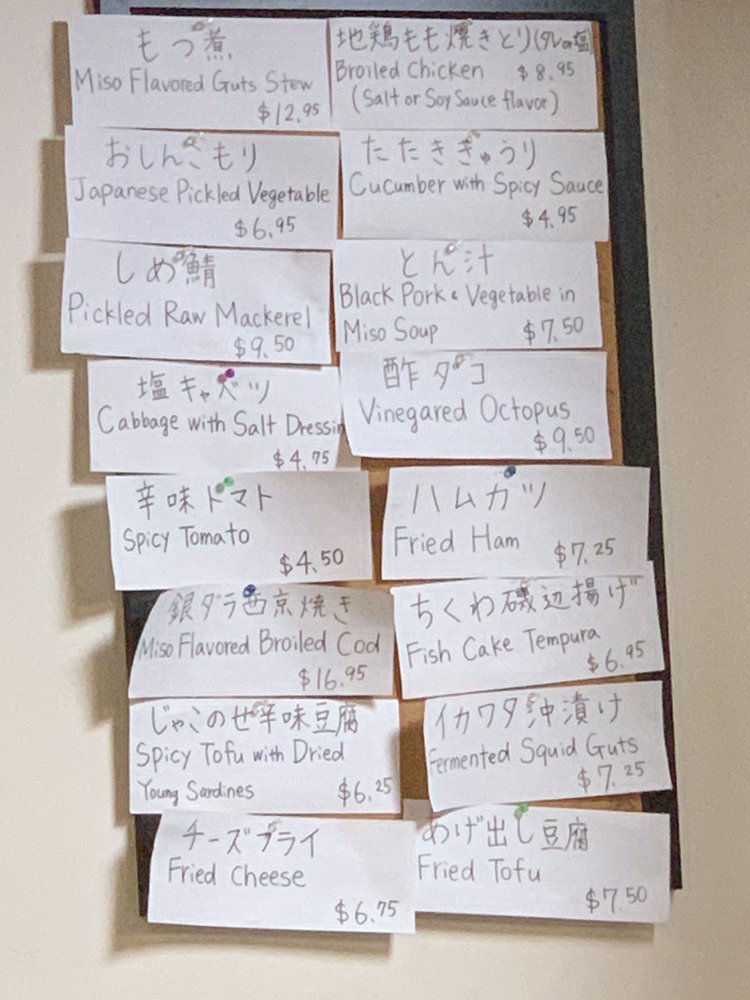 もつ煮
Miso Flavored Guts Stew
$12.95
地鶏もも焼きとり(タレor塩)
Broiled Chicken $8.95
(Salt or Soy Sauce flavor)
おしんこもり
Japanese Pickled Vegetable
$6.95
たたききゅうり
Cucumber with Spicy Sauce
$4.95
しめ鯖
Pickled Raw Mackerel
$9.50
とん汁
Black Pork & Vegetable in
Miso Soup $7.50
塩キャベツ
Cabbage with Salt Dressin
$4.75
酢ダコ
Vinegared Octopus
$9.50
辛味トマト
Spicy Tomato
$4.50
ハムカツ
Fried Ham $7.25
銀ダラ西京焼き
Miso Flavored Broiled Cod
$16.95
ちくわ磯辺揚げ
Fish Cake Tempura
$6.95
じゃこのせ辛味豆腐
Spicy Tofu with Dried
Young Sardines $6.25
イカワタ沖漬け
Fermented Squid Guts
$7.25
チーズフライ
Fried Cheese
$6.75
あげ出し豆腐
Fried Tofu
$7.50